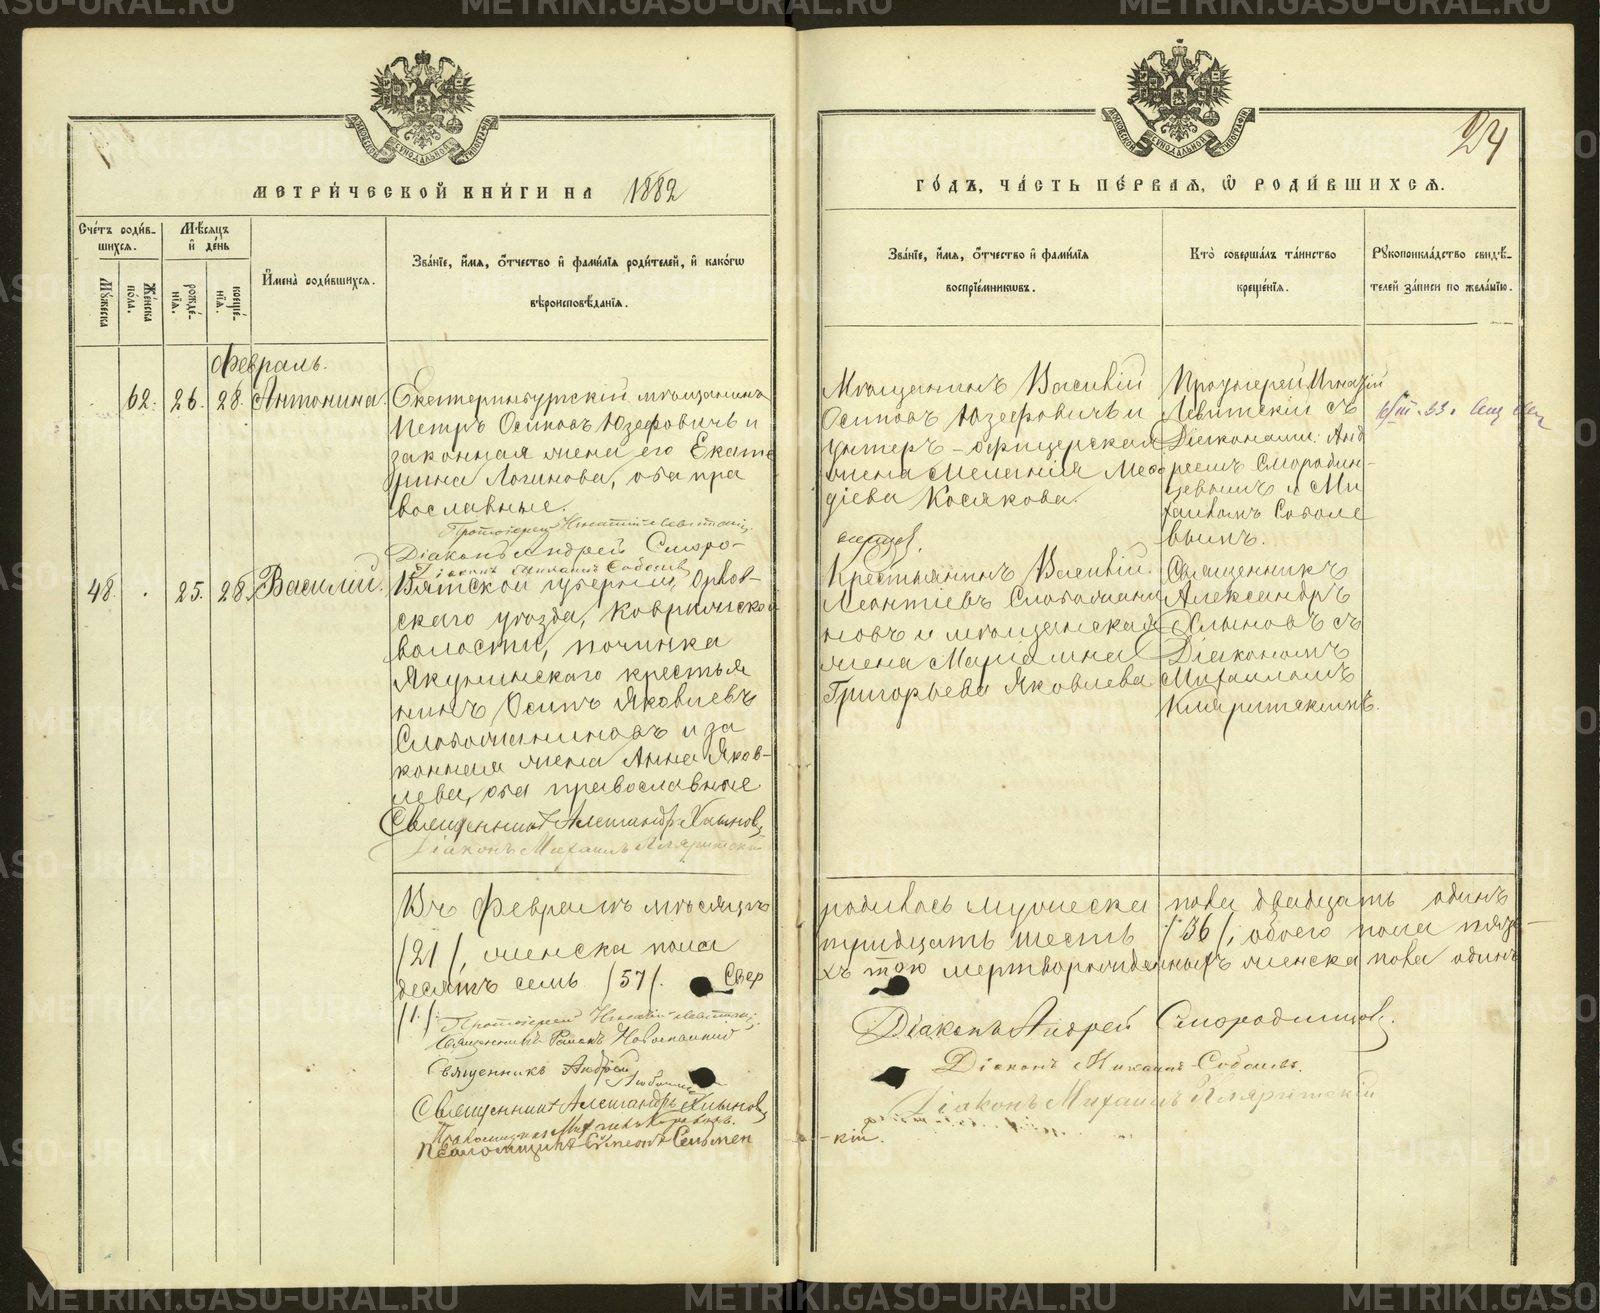 МЕТРИ́ЧЕСКОЙ КНИ́ГИ НА 1882
Сче́тъ роди́в-
шихся.
Мѣ́сяцъ
и҆ де́нь
Му́жеска
Же́нска
по́ла.
рожде́-
нїя.
креще́-
нїя.
И҆мена̀ роди́вшихся.
Зва́нїе, и҆́мя, ѻ҆́тчество и҆ фами́лїя роди́телей, и҆ како́гѡ
вѣроисповѣ́данїя.
Февраль.
62. 26. 28. Антонина.
Екатеринбургскій мѣщанинъ
Петръ Осиповъ Юзефовичъ и
законная жена его Екате
рина Логинова, оба пра
вославные.
Протоіерей Игнатій Левитскій
Діаконъ Андрей Сморо-
Діаконъ Михаилъ Соболевъ
48. 25. 28. Василій.
Вятской губерніи, Орлов-
скаго уѣзда,
волости, починка
Якунинскаго крестья
нинъ Осипъ Яковлевъ
Слобожаниновъ и за
конная жена Анна Яков-
лева, оба православные
Священникъ Александръ Хлыновъ
Діаконъ Михаилъ
Въ Февралѣ мѣсяцѣ
/21/, женска пола
десятъ семь /57/. Свер
/1/.
Протоіерей Игнатій Левитскій
Священникъ
Священникъ Андрей
Священникъ Александръ Хлыновъ
Псаломщикъ
ГО́ДЪ, ЧА́СТЬ ПЕ́РВАЯ, Ѡ҆ РОДИ́ВШИХСЯ.
24
Зва́нїе, и҆́мя, ѻ҆́тчество и҆ фами́лїя
воспрїе́мникѡвъ.
Кто̀ соверша́лъ та́инство
креще́нїя.
Рукоприкла́дство свидѣ́-
телей за́писи по жела́нїю.
Мѣщанинъ Василій
Осиповъ Юзефовичъ и
унтеръ-офицерская
жена Меланія Меѳо
діева Косякова.
Протоіерей Игнатій
Левитскій съ
Діаконами: Анд
реемъ Смородин-
цевымъ и Ми
хаиломъ Соболе
вымъ.
Крестьянинъ Василій
Леонтіевъ Слобожани
новъ и мѣщанская
жена Маріамна
Григорьева Яковлева
Священникъ
Александръ
Хлыновъ съ
Діакономъ
Михаиломъ
родилось мужеска пола двадцать одинъ
тридцать шесть /36/, обоего пола пятъ-
хъ того мертворожденныхъ женска пола одинъ
Діаконъ Андрей Смородинцовъ.
Діаконъ Михаилъ Соболевъ.
Діаконъ Михаилъ
-кій.
METRIKI.GASO-URAL.RU